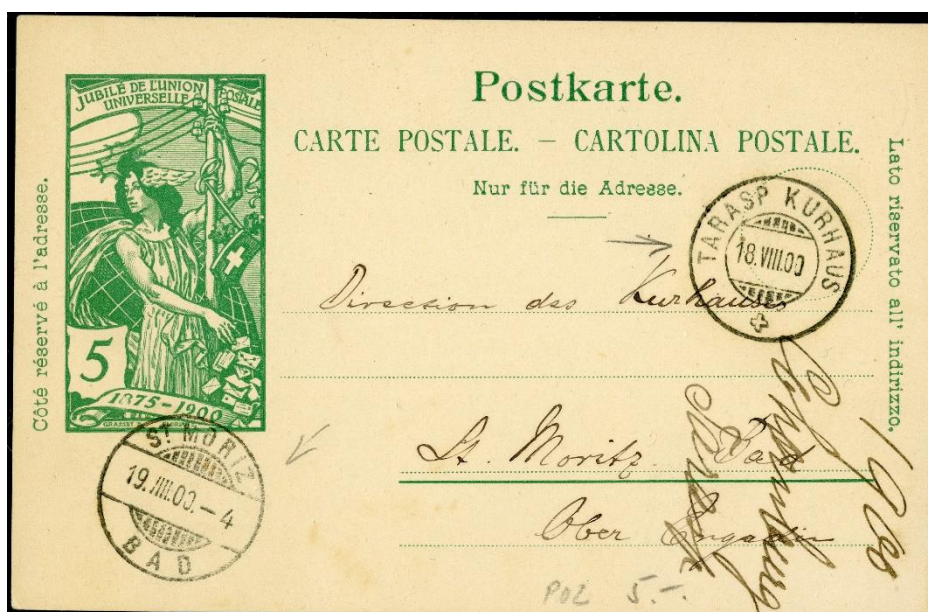 JUBILÉ DE L'UNION POSTALE
UNIVERSELLE
5
1875-1900
Côté réservé à l'adresse.
Postkarte.
CARTE POSTALE. – CARTOLINA POSTALE.
Nur für die Adresse.
Lato riservato all' indirizzo.
TARASP KURHAUS
18.VIII.00
Direction des Kurhauses
St. Moritz Bad
Ober Engadin
ST MORIZ
19.VIII.00.–4
BAD
5.–.